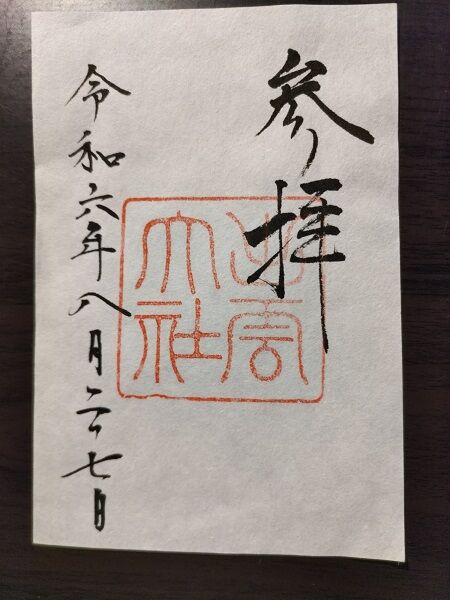 参拝
出雲
大社
令和六年八月二十七日